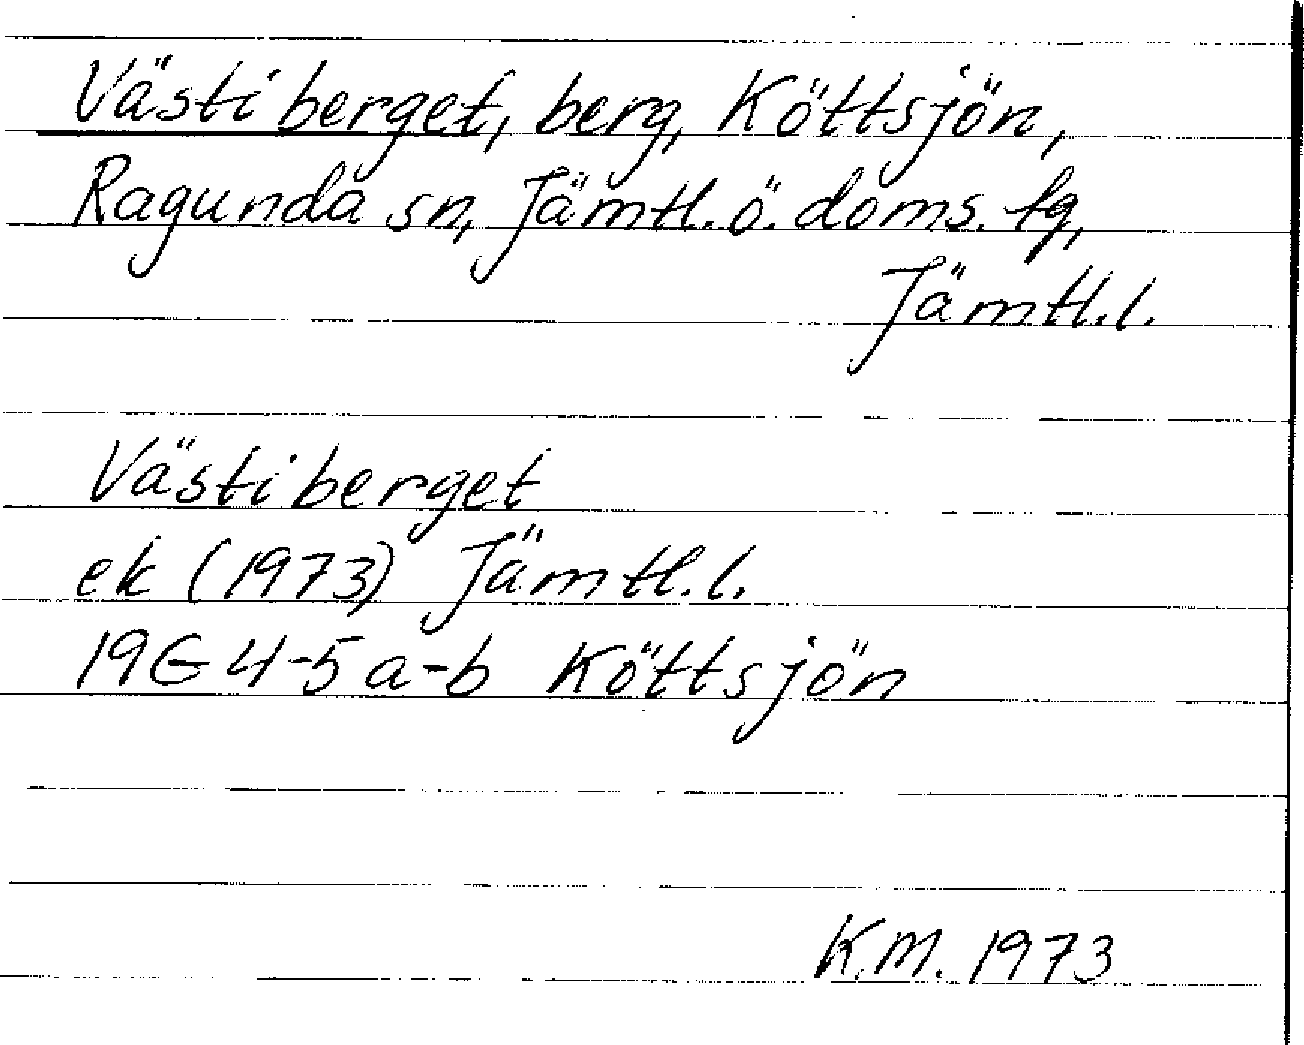 Västiberget, berg, Köttsjön,
Ragunda sn, Jämtl. ö. doms. tg,
Jämtl. l.
Västiberget
ek (1973) Jämtl. l.
19G 4-5 a-b Köttsjön
K.M. 1973